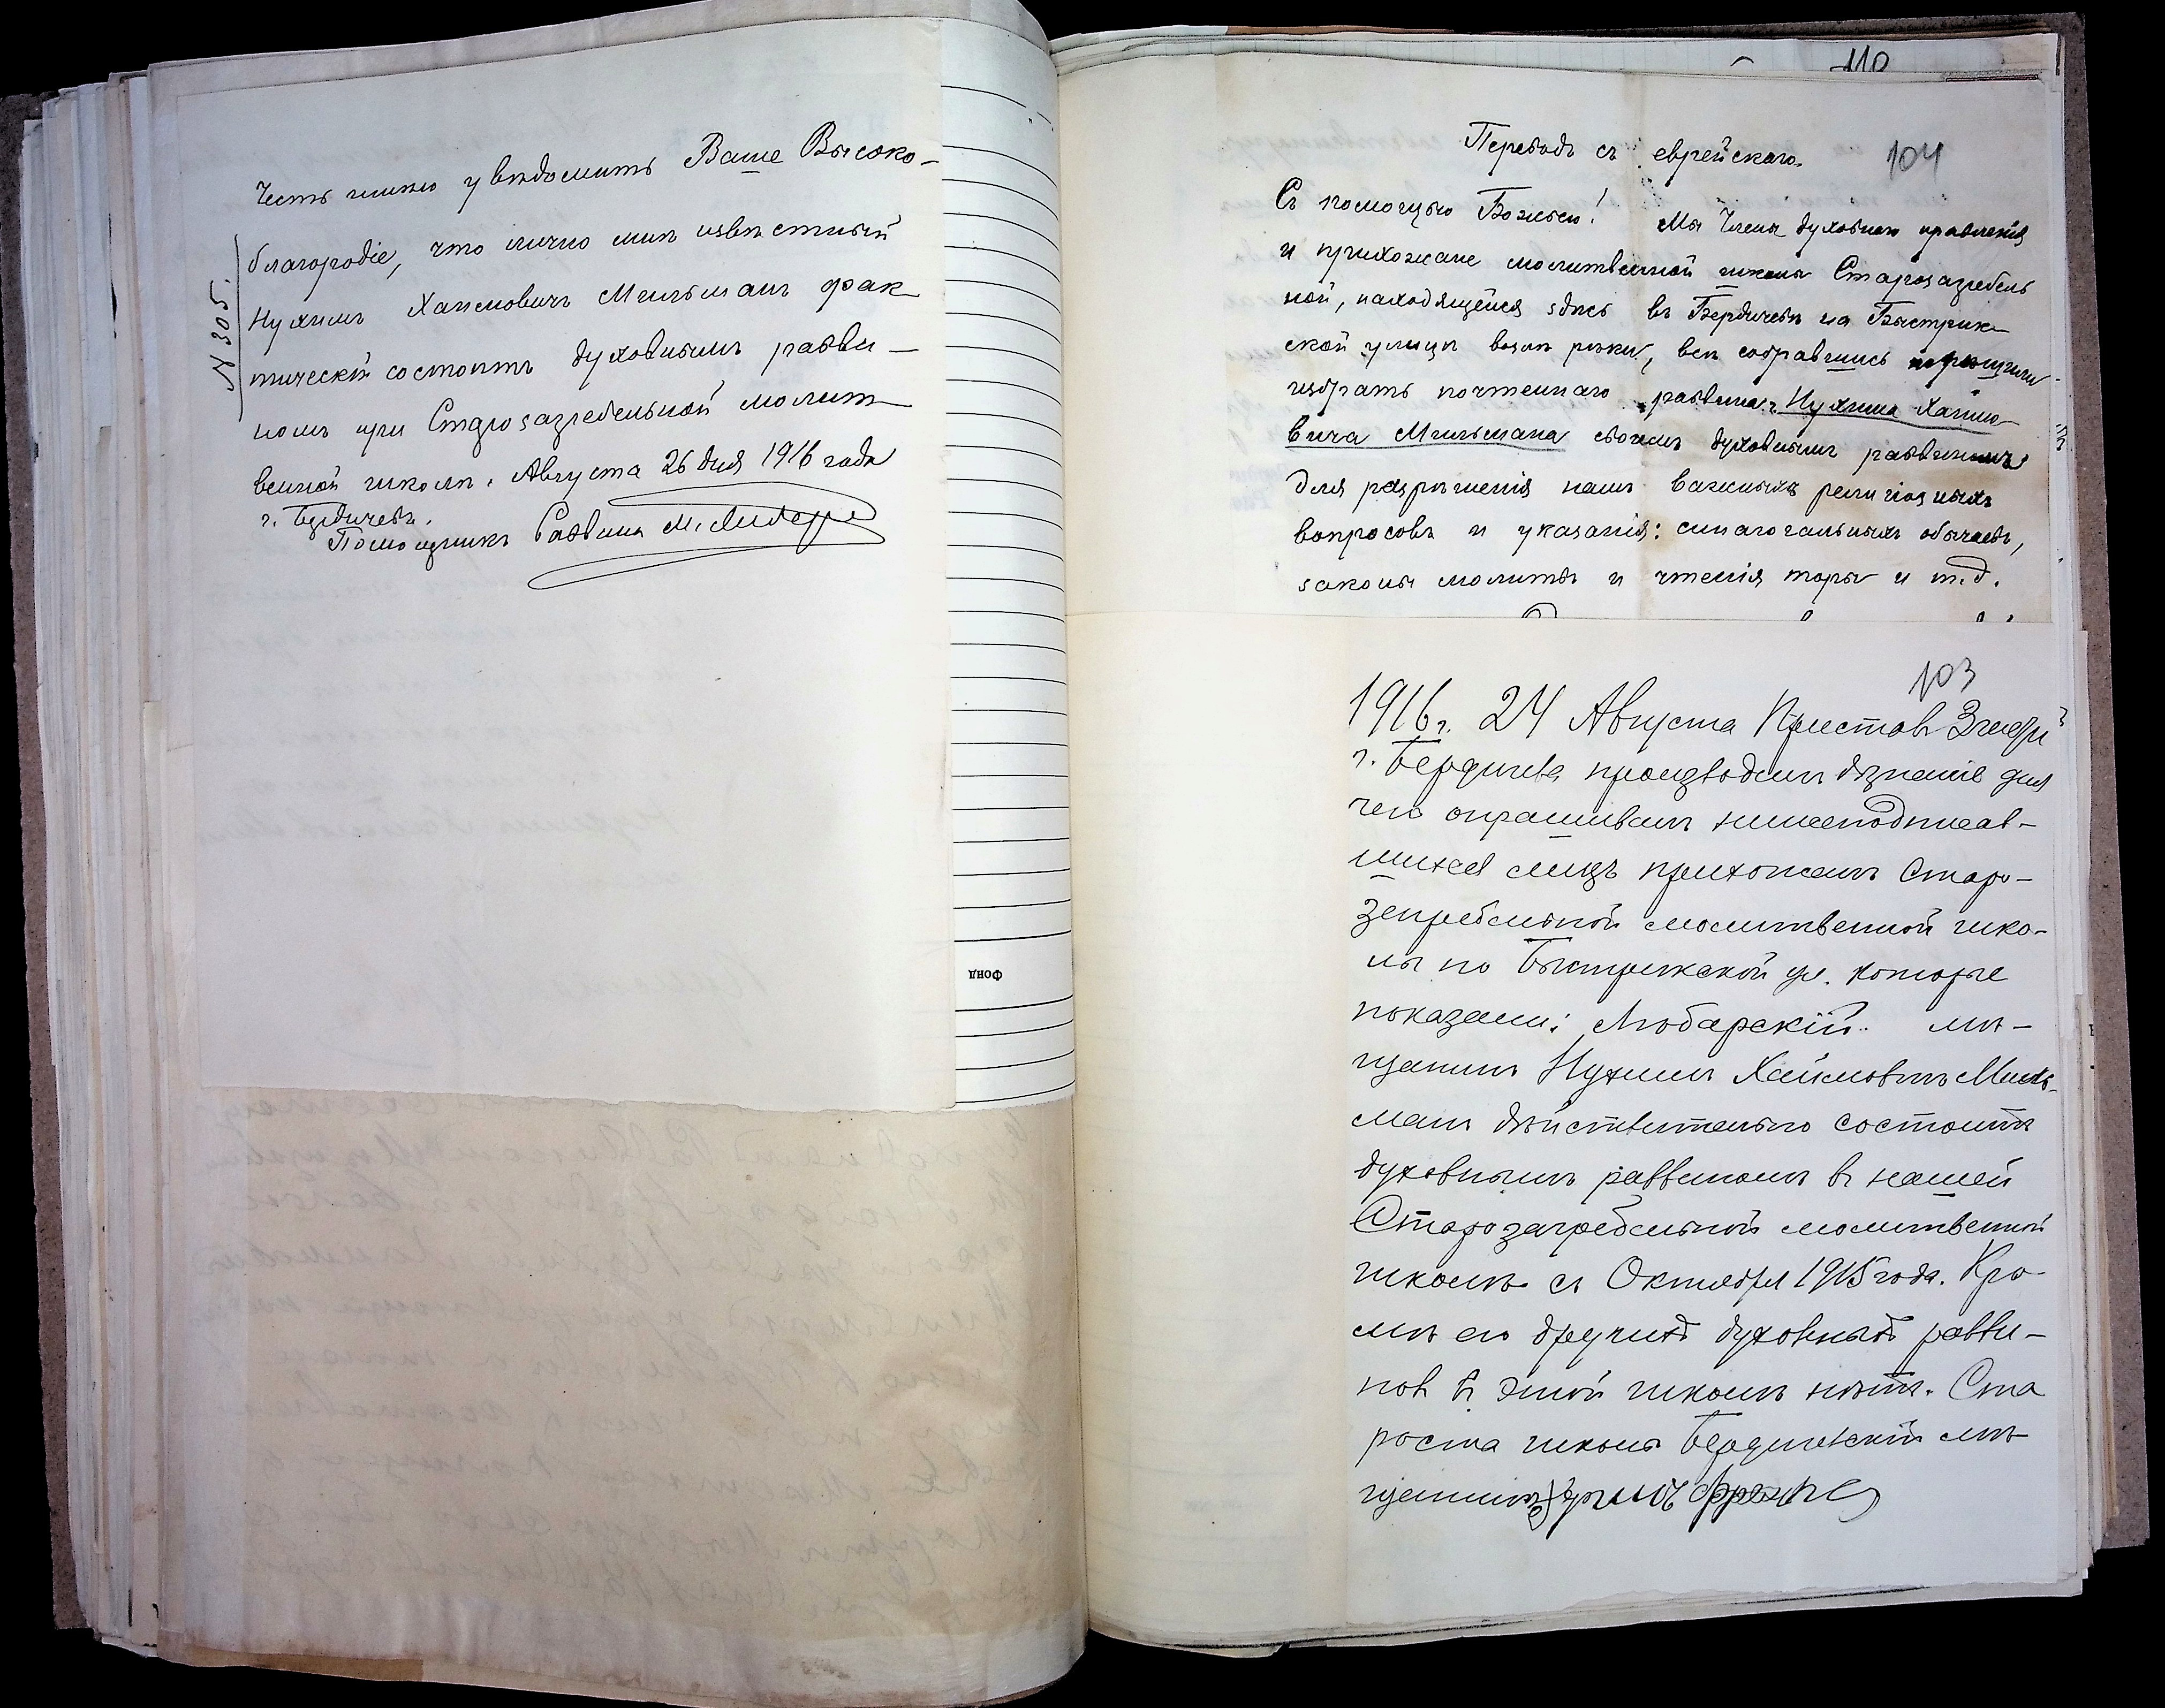 Честь имею увѣдомить Ваше Высоко-
благородіе, что лично мнѣ извѣстный
Нухимъ Хаимовичъ Мильманъ фак-
тически состоитъ духовнымъ равви-
номъ при Старозагребельной молит-
венной школѣ. Августа 26 дня 1916 года
г. Бердичевъ.
Помощникъ Раввина М.
N 305.
Фонд
110
Переводъ съ еврейскаго.
104
Съ помощью Божьей! Мы Члены духовного правленія
и прихожане молитвенной школы Старозагребель
ной, находящейся здѣсь въ Бердичевѣ на Быстрик-
ской улицѣ возлѣ рѣки, всѣ собравшись порѣшили
избрать почтеннаго раввина Нухима Хаимо-
вича Мильмана своимъ духовнымъ раввиномъ
для разрѣшенія намъ важныхъ религіозныхъ
вопросовъ и указанія: синагогальныхъ обычаевъ,
законы молитвъ и чтенія торы и т.д.
103
1916 г. 24 Августа Приставъ 3 части
г. Бердичева производилъ дознаніе для
чего опрашивалъ нижеподписав-
шихся лицъ прихожанъ Старо-
загребельной молитвенной шко-
лы по Быстрикской ул. которые
показали: Любарскій мѣ-
щанинъ Нухимъ Хаимовичъ Миль-
манъ дѣйствительно состоитъ
духовнымъ раввиномъ въ нашей
Старозагребельной молитвенной
школѣ съ Октября 1915 года. Кро-
мѣ его другихъ духовныхъ равви-
новъ въ этой школѣ нѣтъ. Ста
роста школы Бердичевскій мѣ
щанинъ